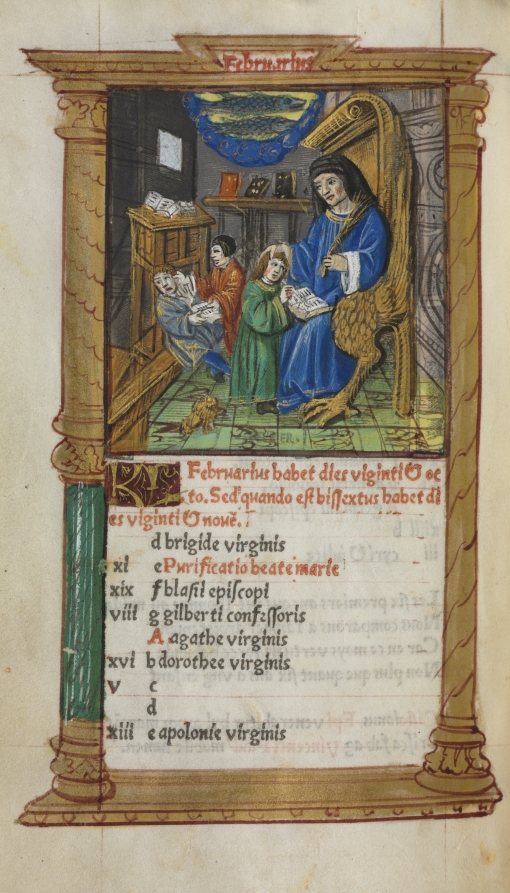 Februarius
KL Februarius habet dies viginti & oc
to. Sed quando est bissextus habet di
es viginti & noue.
d brigide virginis
xi e Purificatio beate marie
xix f blasii episcopi
viii g gilberti confessoris
A agathe virginis
xvi b dorothee virginis
v c
d
xiii e apolonie virginis